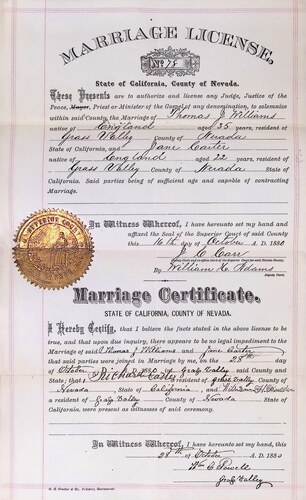 MARRIAGE LICENSE,
No 78
State of California, County of Nevada.
These Presents are to authorize and license any Judge, Justice of the
Peace, Mayor, Priest or Minister of the Gospel of any denomination, to solemnize
within said County, the Marriage of Thomas J Williams
native of England aged 35 years, resident of
Grass Valley County of Nevada
State of California, and Jane Carter
native of England aged 22 years, resident of
Grass Valley County of Nevada State of
California. Said parties being of sufficient age and capable of contracting
Marriage.
In Witness Whereof, I have hereunto set my hand and
affixed the Seal of the Superior Court of said County
this 16th day of October A. D. 1880
J. C. Carr
By William H. Adams
Deputy Clerk.
SUPERIOR COURT
Marriage Certificate.
STATE OF CALIFORNIA, COUNTY OF NEVADA.
I Hereby Certify, that I believe the facts stated in the above license to
be true, and that upon due inquiry, there appears to be no legal impediment to the
Marriage of said Thomas J Williams and Jane Carter
that said parties were joined in Marriage by me, on the 28th day of
October, A. D. 1880, in Grass Valley said County and
State; that Richard a resident of Grass Valley County of
Nevada, State of California, and William H.
a resident of Grass Valley County of Nevada State of
California, were present as witnesses of said ceremony.
In Witness Whereof, I have hereunto set my hand, this
28 day of October A. D. 1880
Wm C Powell
Grass Valley